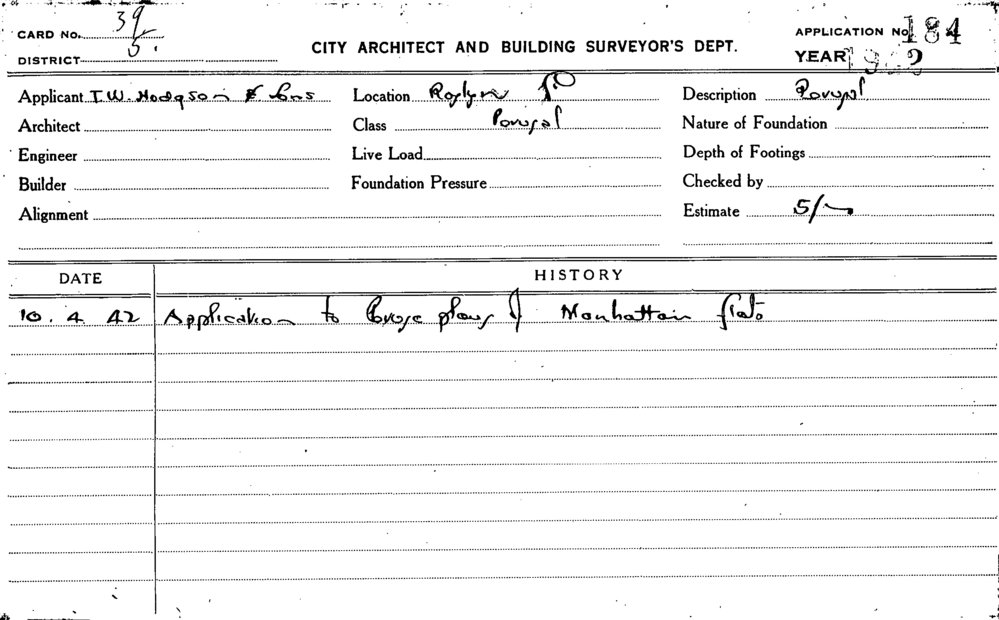 CARD No. 39
DISTRICT 5.
CITY ARCHITECT AND BUILDING SURVEYOR'S DEPT.
APPLICATION No 184
YEAR 1942
Applicant T.W. Hodgson & Sons Location Roslyn Description Perusal
Architect Class Perusal Nature of Foundation
Engineer Live Load Depth of Footings
Builder Foundation Pressure Checked by
Alignment Estimate 5/-
DATE HISTORY
10. 4. 42 Application to peruse plans of Manhattan flats